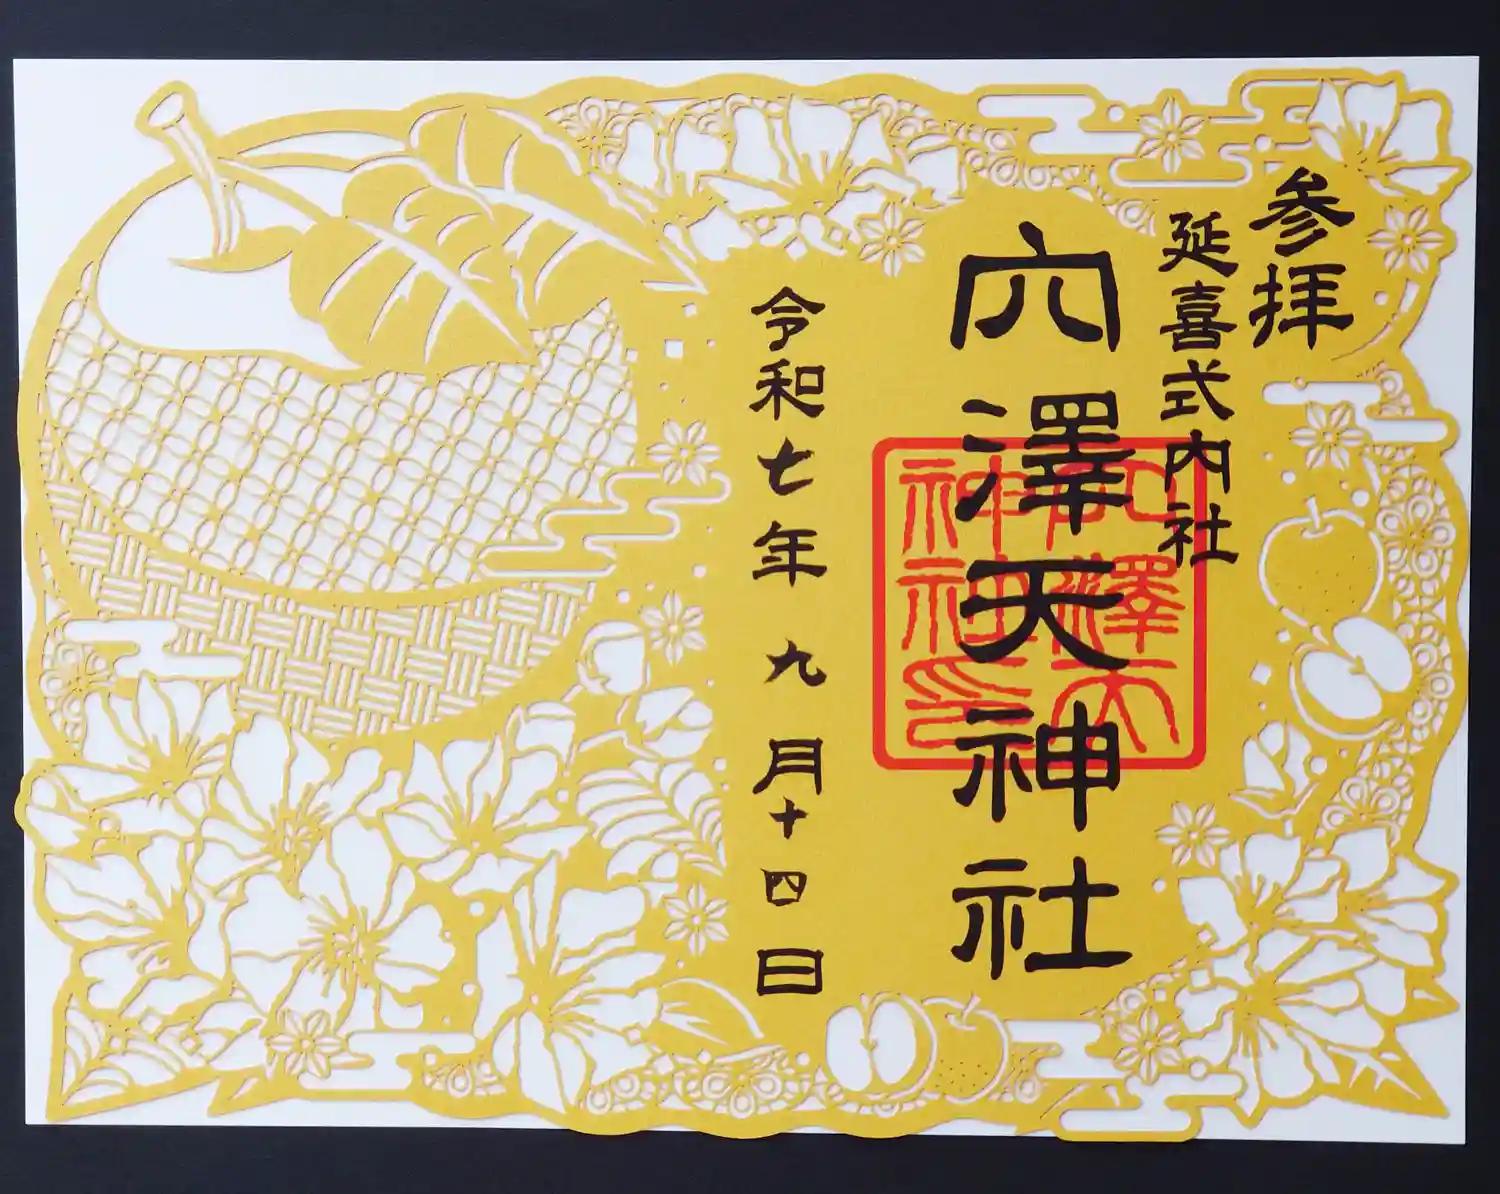 参拝
延喜式内社
穴澤天神社
穴澤天神社印
令和七年九月十四日